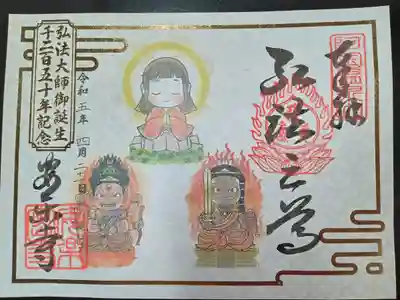 奉拝
弘法三尊
令和五年四月二十二日
安楽寺
弘法大師御誕生
千二百五十年記念